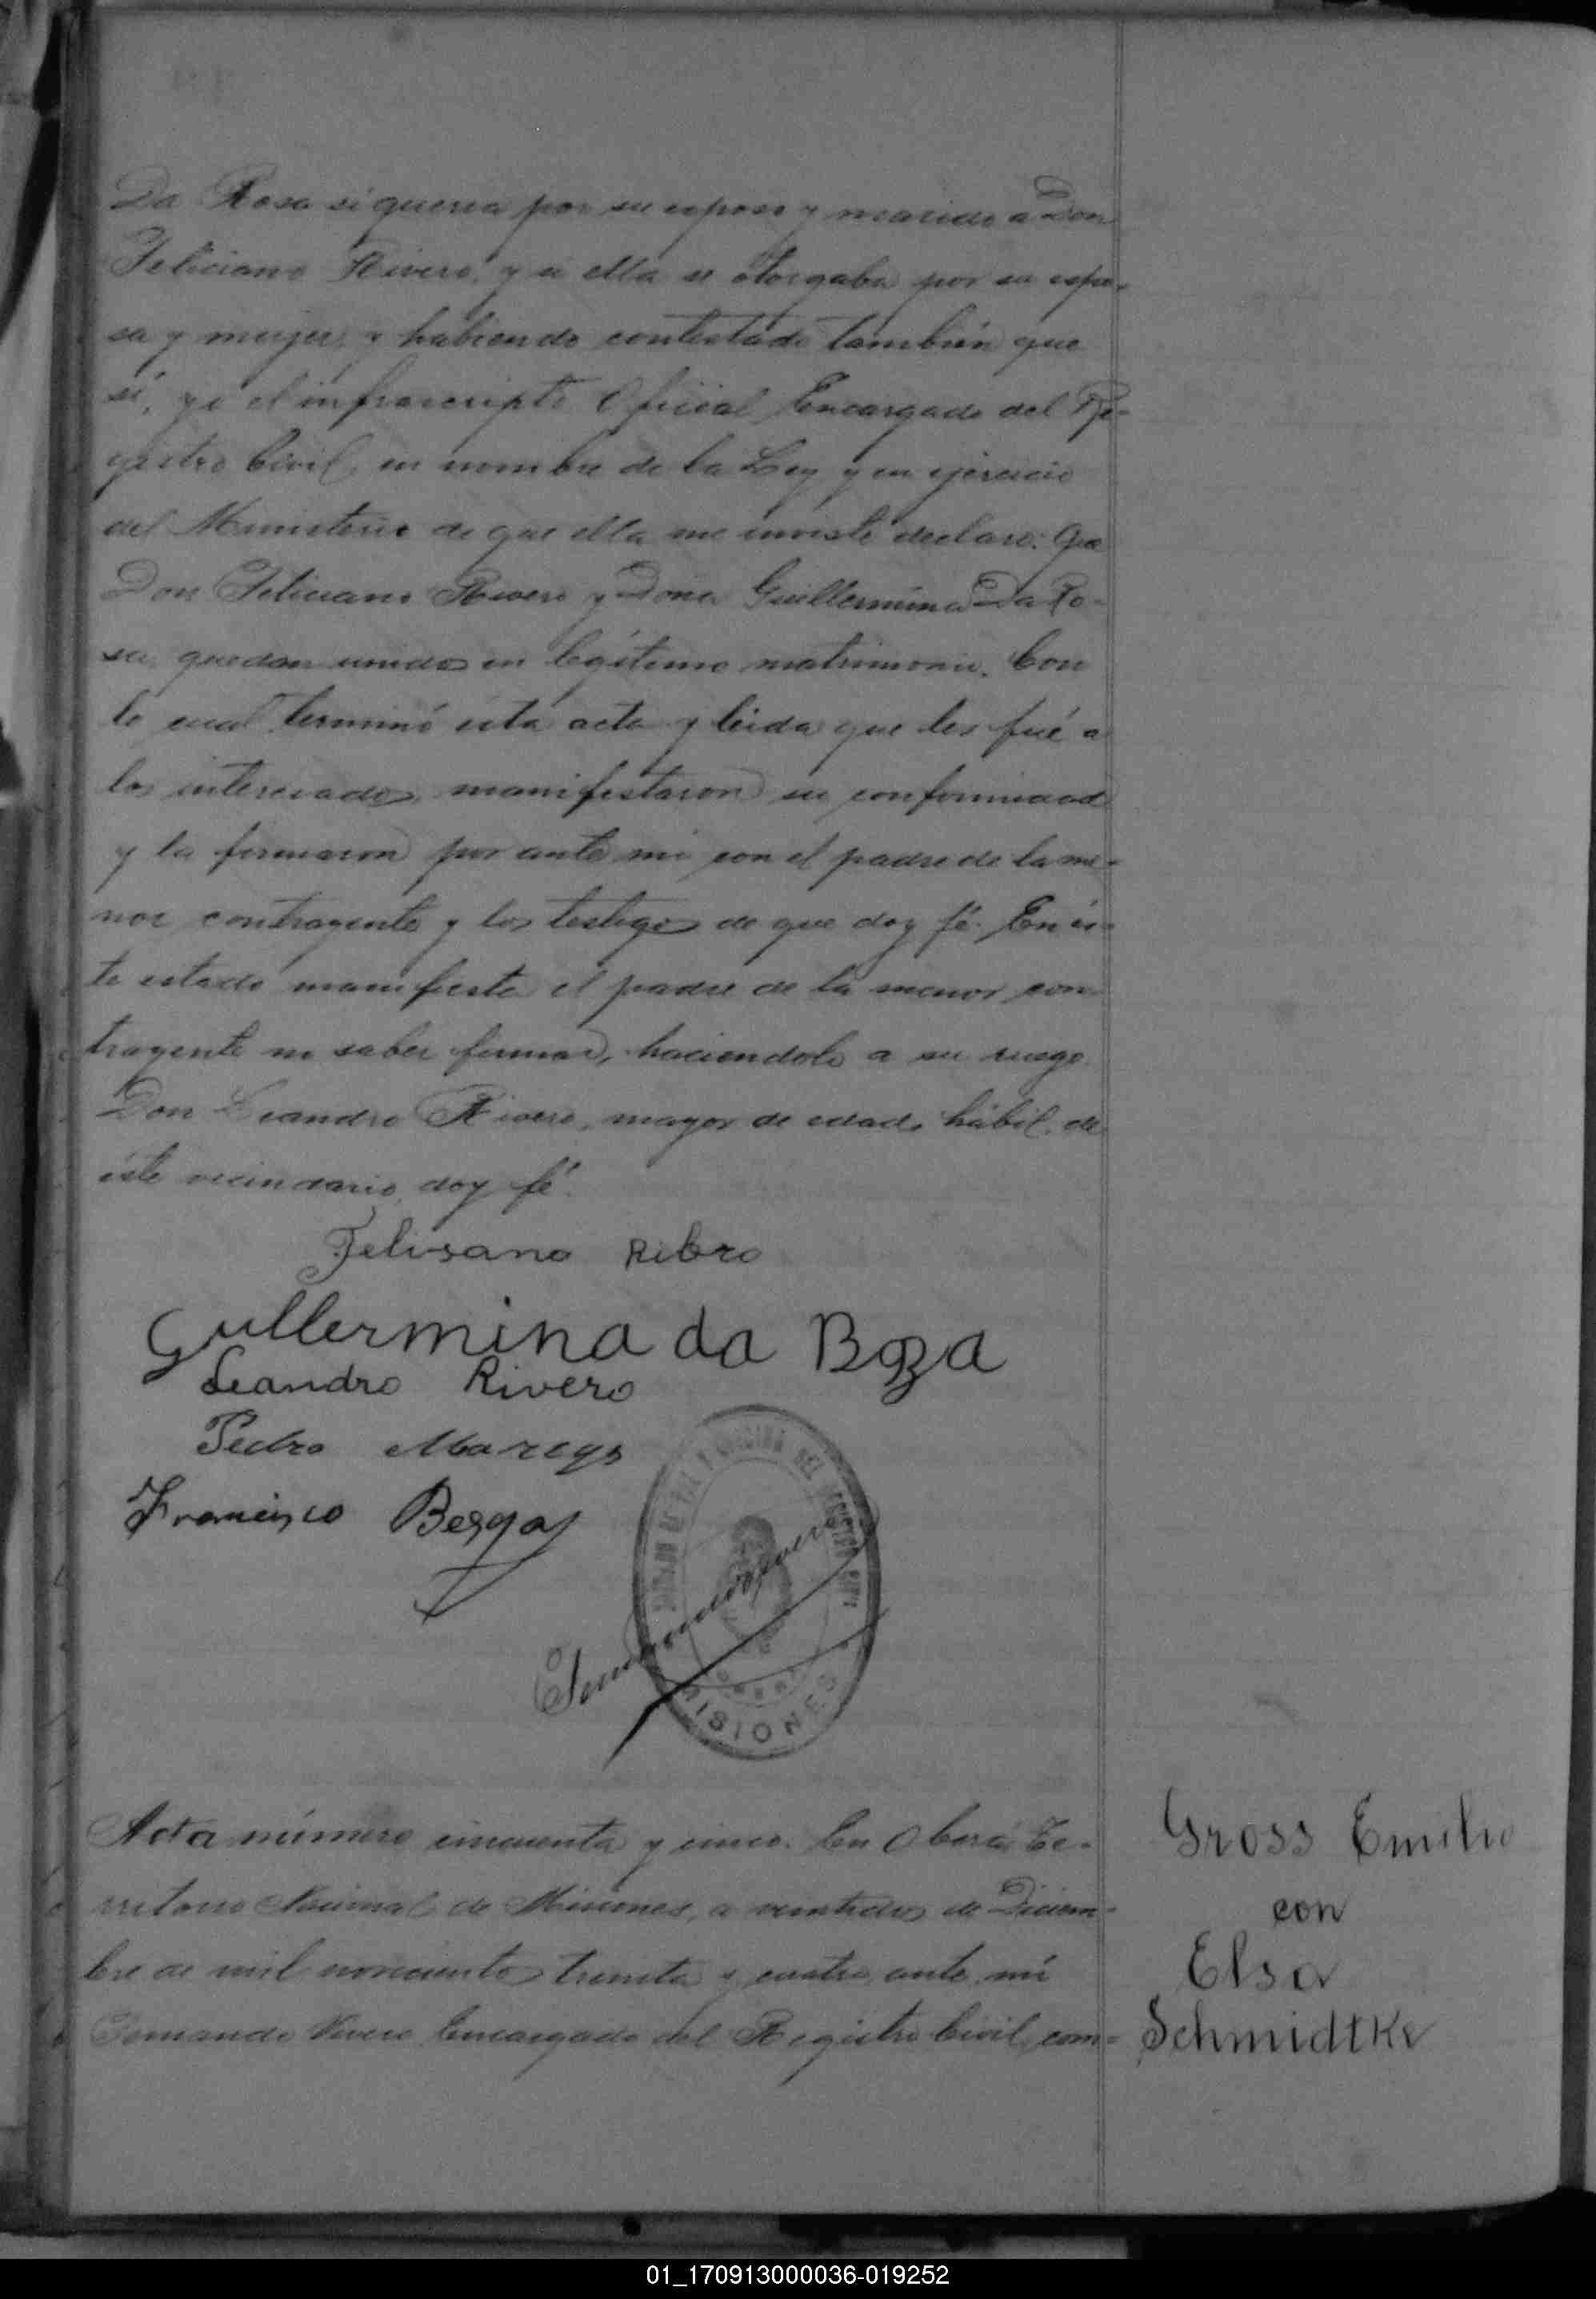 Da Rosa si queria por su esposo y marido a Don
Feliciano Rivero, y si ella se otorgaba por su espo-
sa y mujer, y habiendo contestado también que
sí, yo el infrascripto Oficial Encargado del Re-
gistro Civil, en nombre de la Ley y en ejercicio
del Ministerio de que ella me inviste declaro: Que
Don Feliciano Rivero y Doña Guillermina Da Ro-
sa, quedan unidos en legítimo matrimonio. Con
lo cual terminó esta acta y leida que les fué a
los interesados, manifestaron su conformidad
y la firmaron por ante mi con el padre de la me-
nor contrayente y los testigos de que doy fé. En és-
te estado manifiesta el padre de la menor con-
trayente no saber firmar, haciendolo a su ruego
Don Leandro Rivero, mayor de edad, hábil, de
éste vecindario, doy fé.
Felisano Ribro
Gullermina da Boza
Leandro Rivero
Pedro
Francisco
DEL REGISTRO CIVIL
MISIONES
Acta número cincuenta y cinco. En Oberá Te-
rritorio Nacional de Misiones, a veintidos de Diciem-
bre de mil novecientos treinta y cuatro, ante mí
Encargado del Registro Civil, com-
Gross Emilio
con
Elsa
Schmidtke
01_170913000036-019252